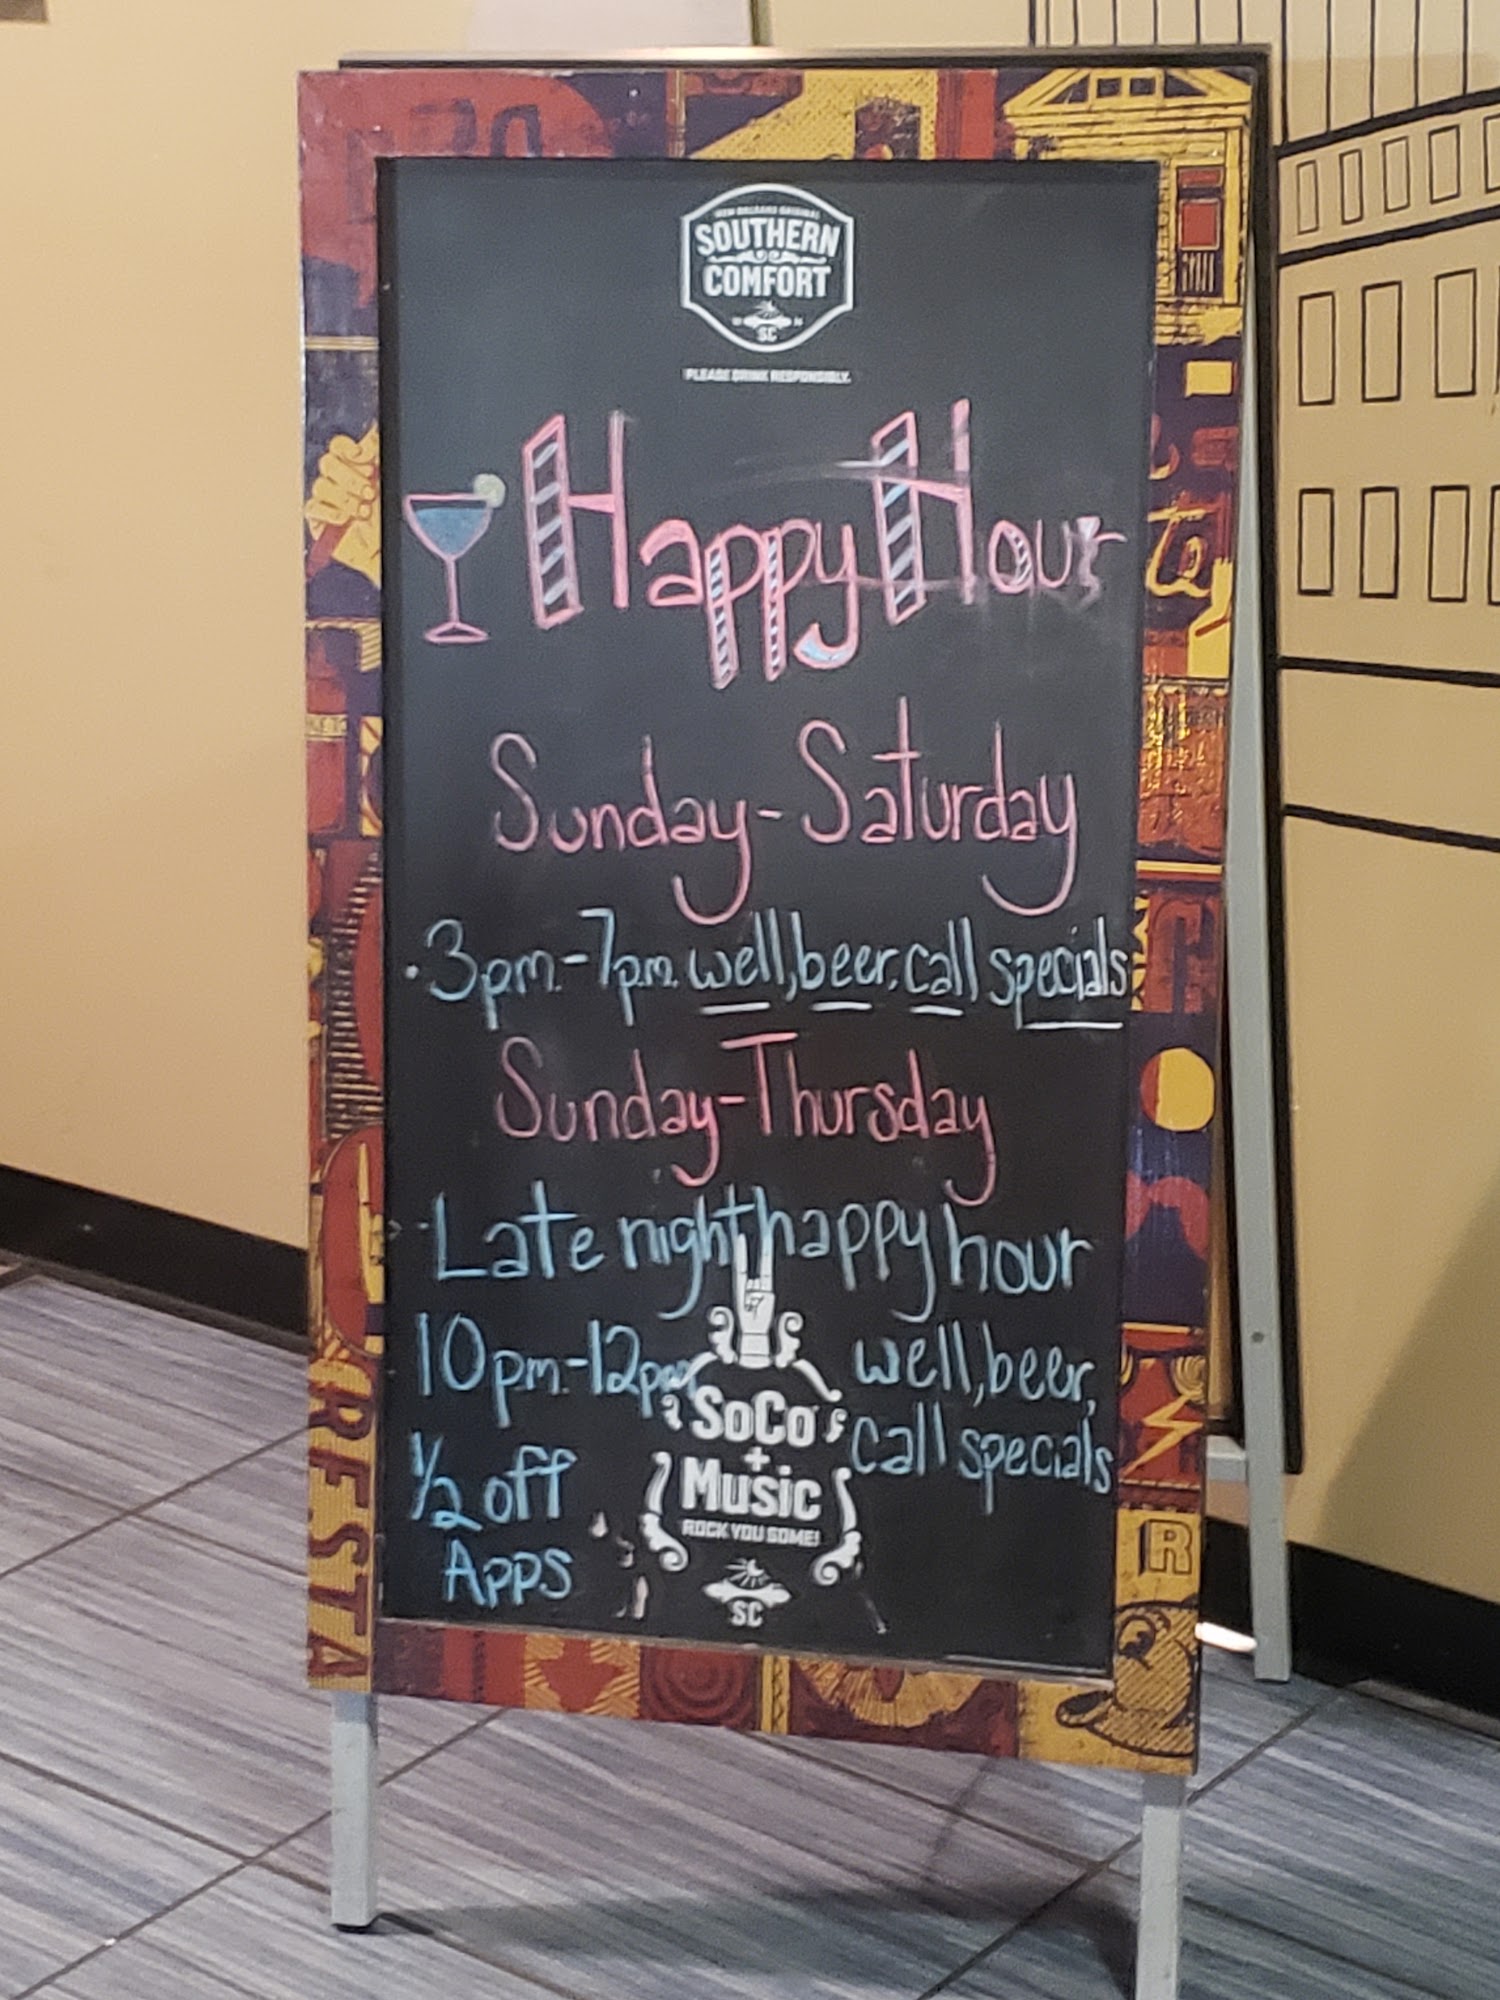 NEW ORLEANS ORIGINAL
SOUTHERN
COMFORT
SC
PLEASE DRINK RESPONSIBLY.
Happy Hour
Sunday-Saturday
· 3pm.-7p.m. well, beer, call specials
Sunday-Thursday
· Late night happy hour
10pm.-12pm well, beer,
call specials
1/2 off
Apps
SoCo
+
Music
ROCK YOU SOME!
SC
RESTA
R